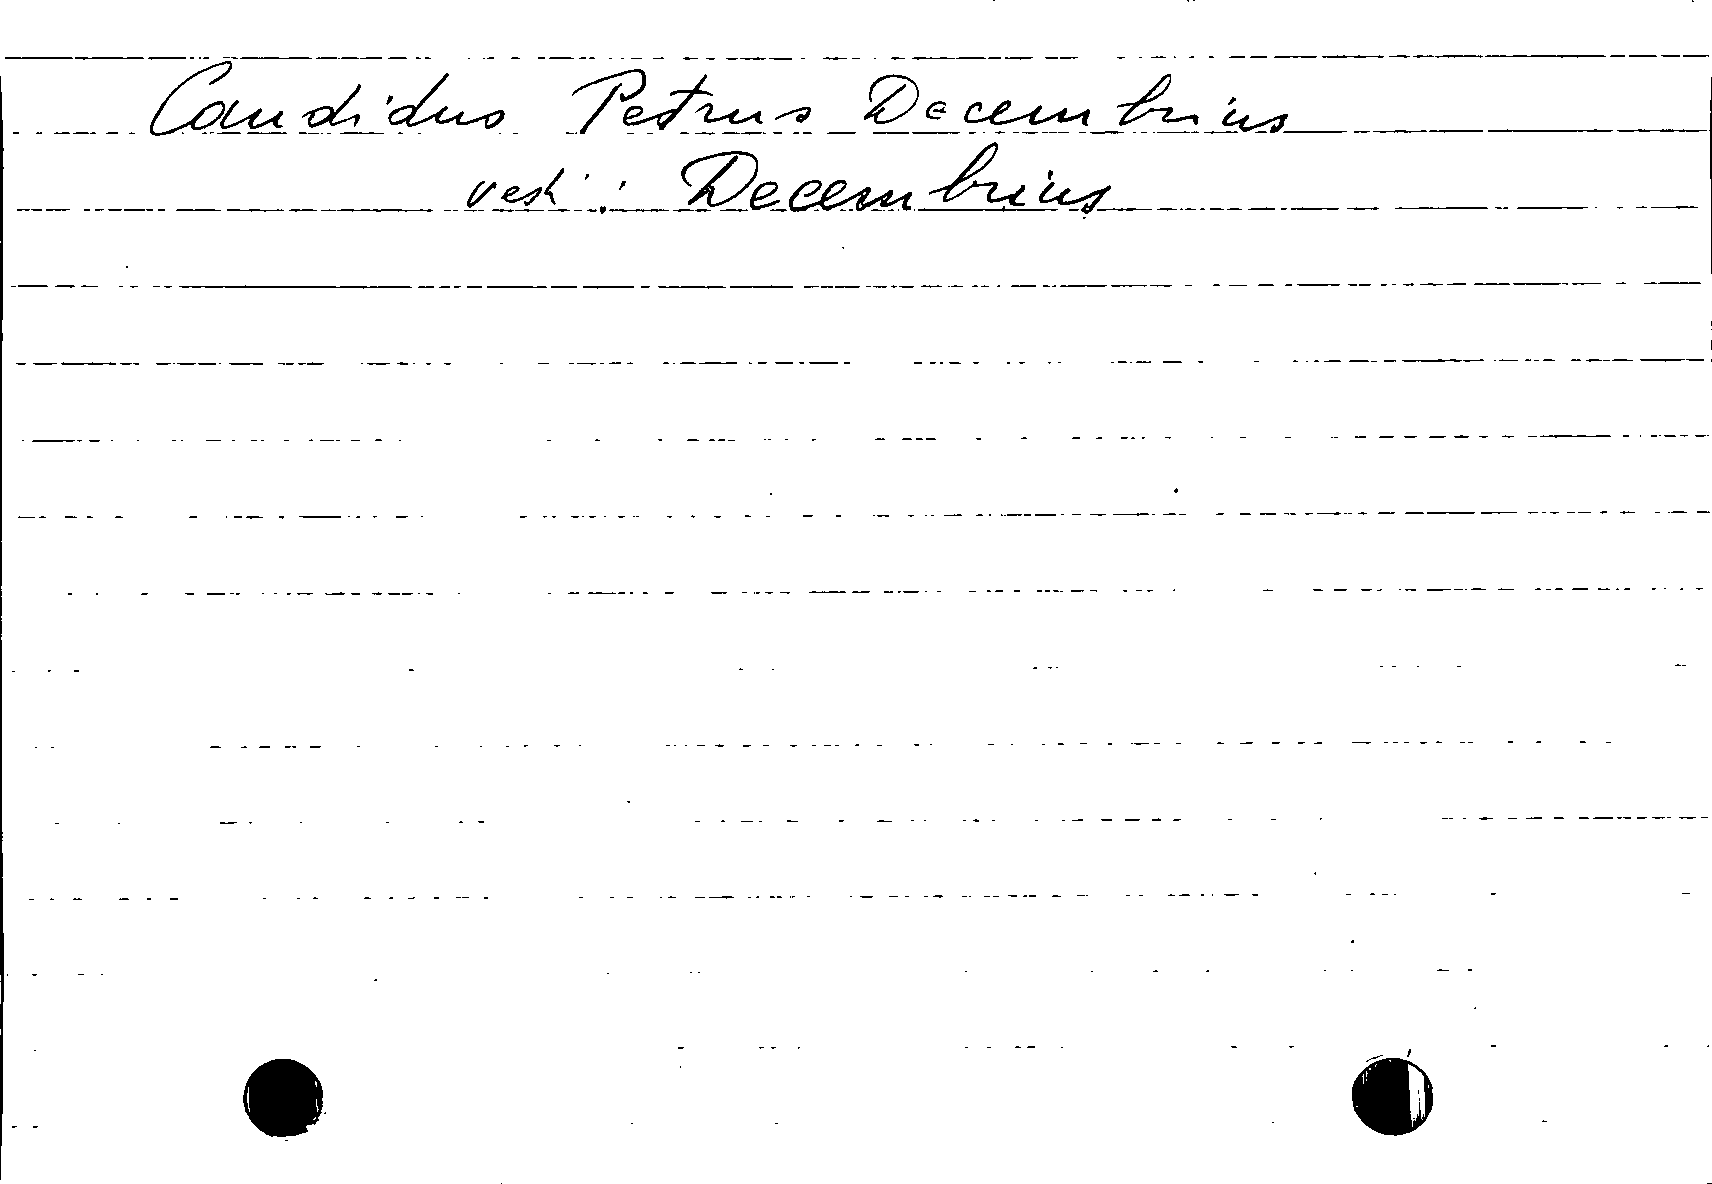 Candidus Petrus Decembrius
vedi: Decembrius